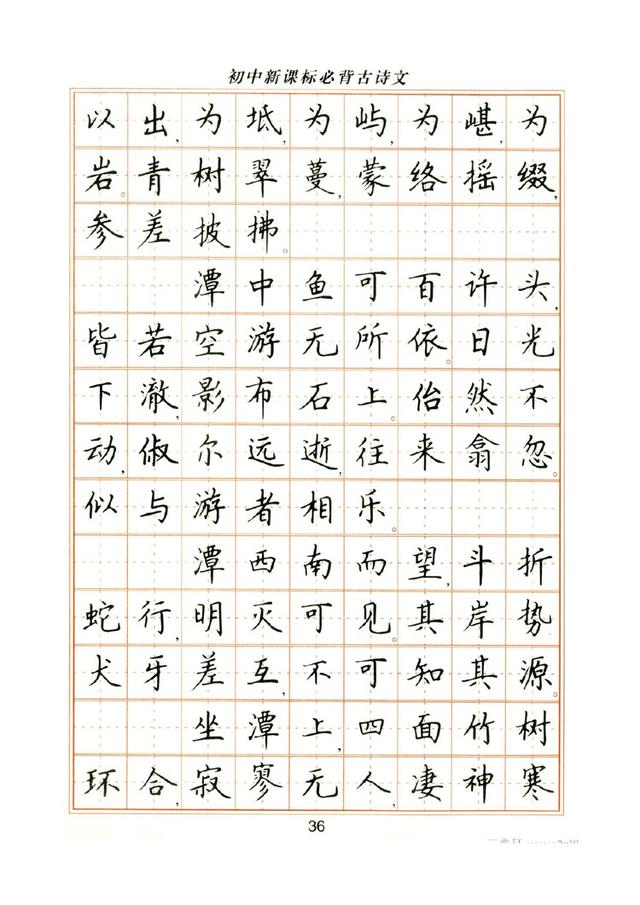 初中新课标必背古诗文
以出,为坻,为屿,为嵁,为
岩。青树翠蔓,蒙络摇缀,
参差披拂。
潭中鱼可百许头,
皆若空游无所依。日光
下澈,影布石上。佁然不
动,俶尔远逝,往来翕忽。
似与游者相乐。
潭西南而望,斗折
蛇行,明灭可见。其岸势
犬牙差互,不可知其源。
坐潭上,四面竹树
环合,寂寥无人,凄神寒
36